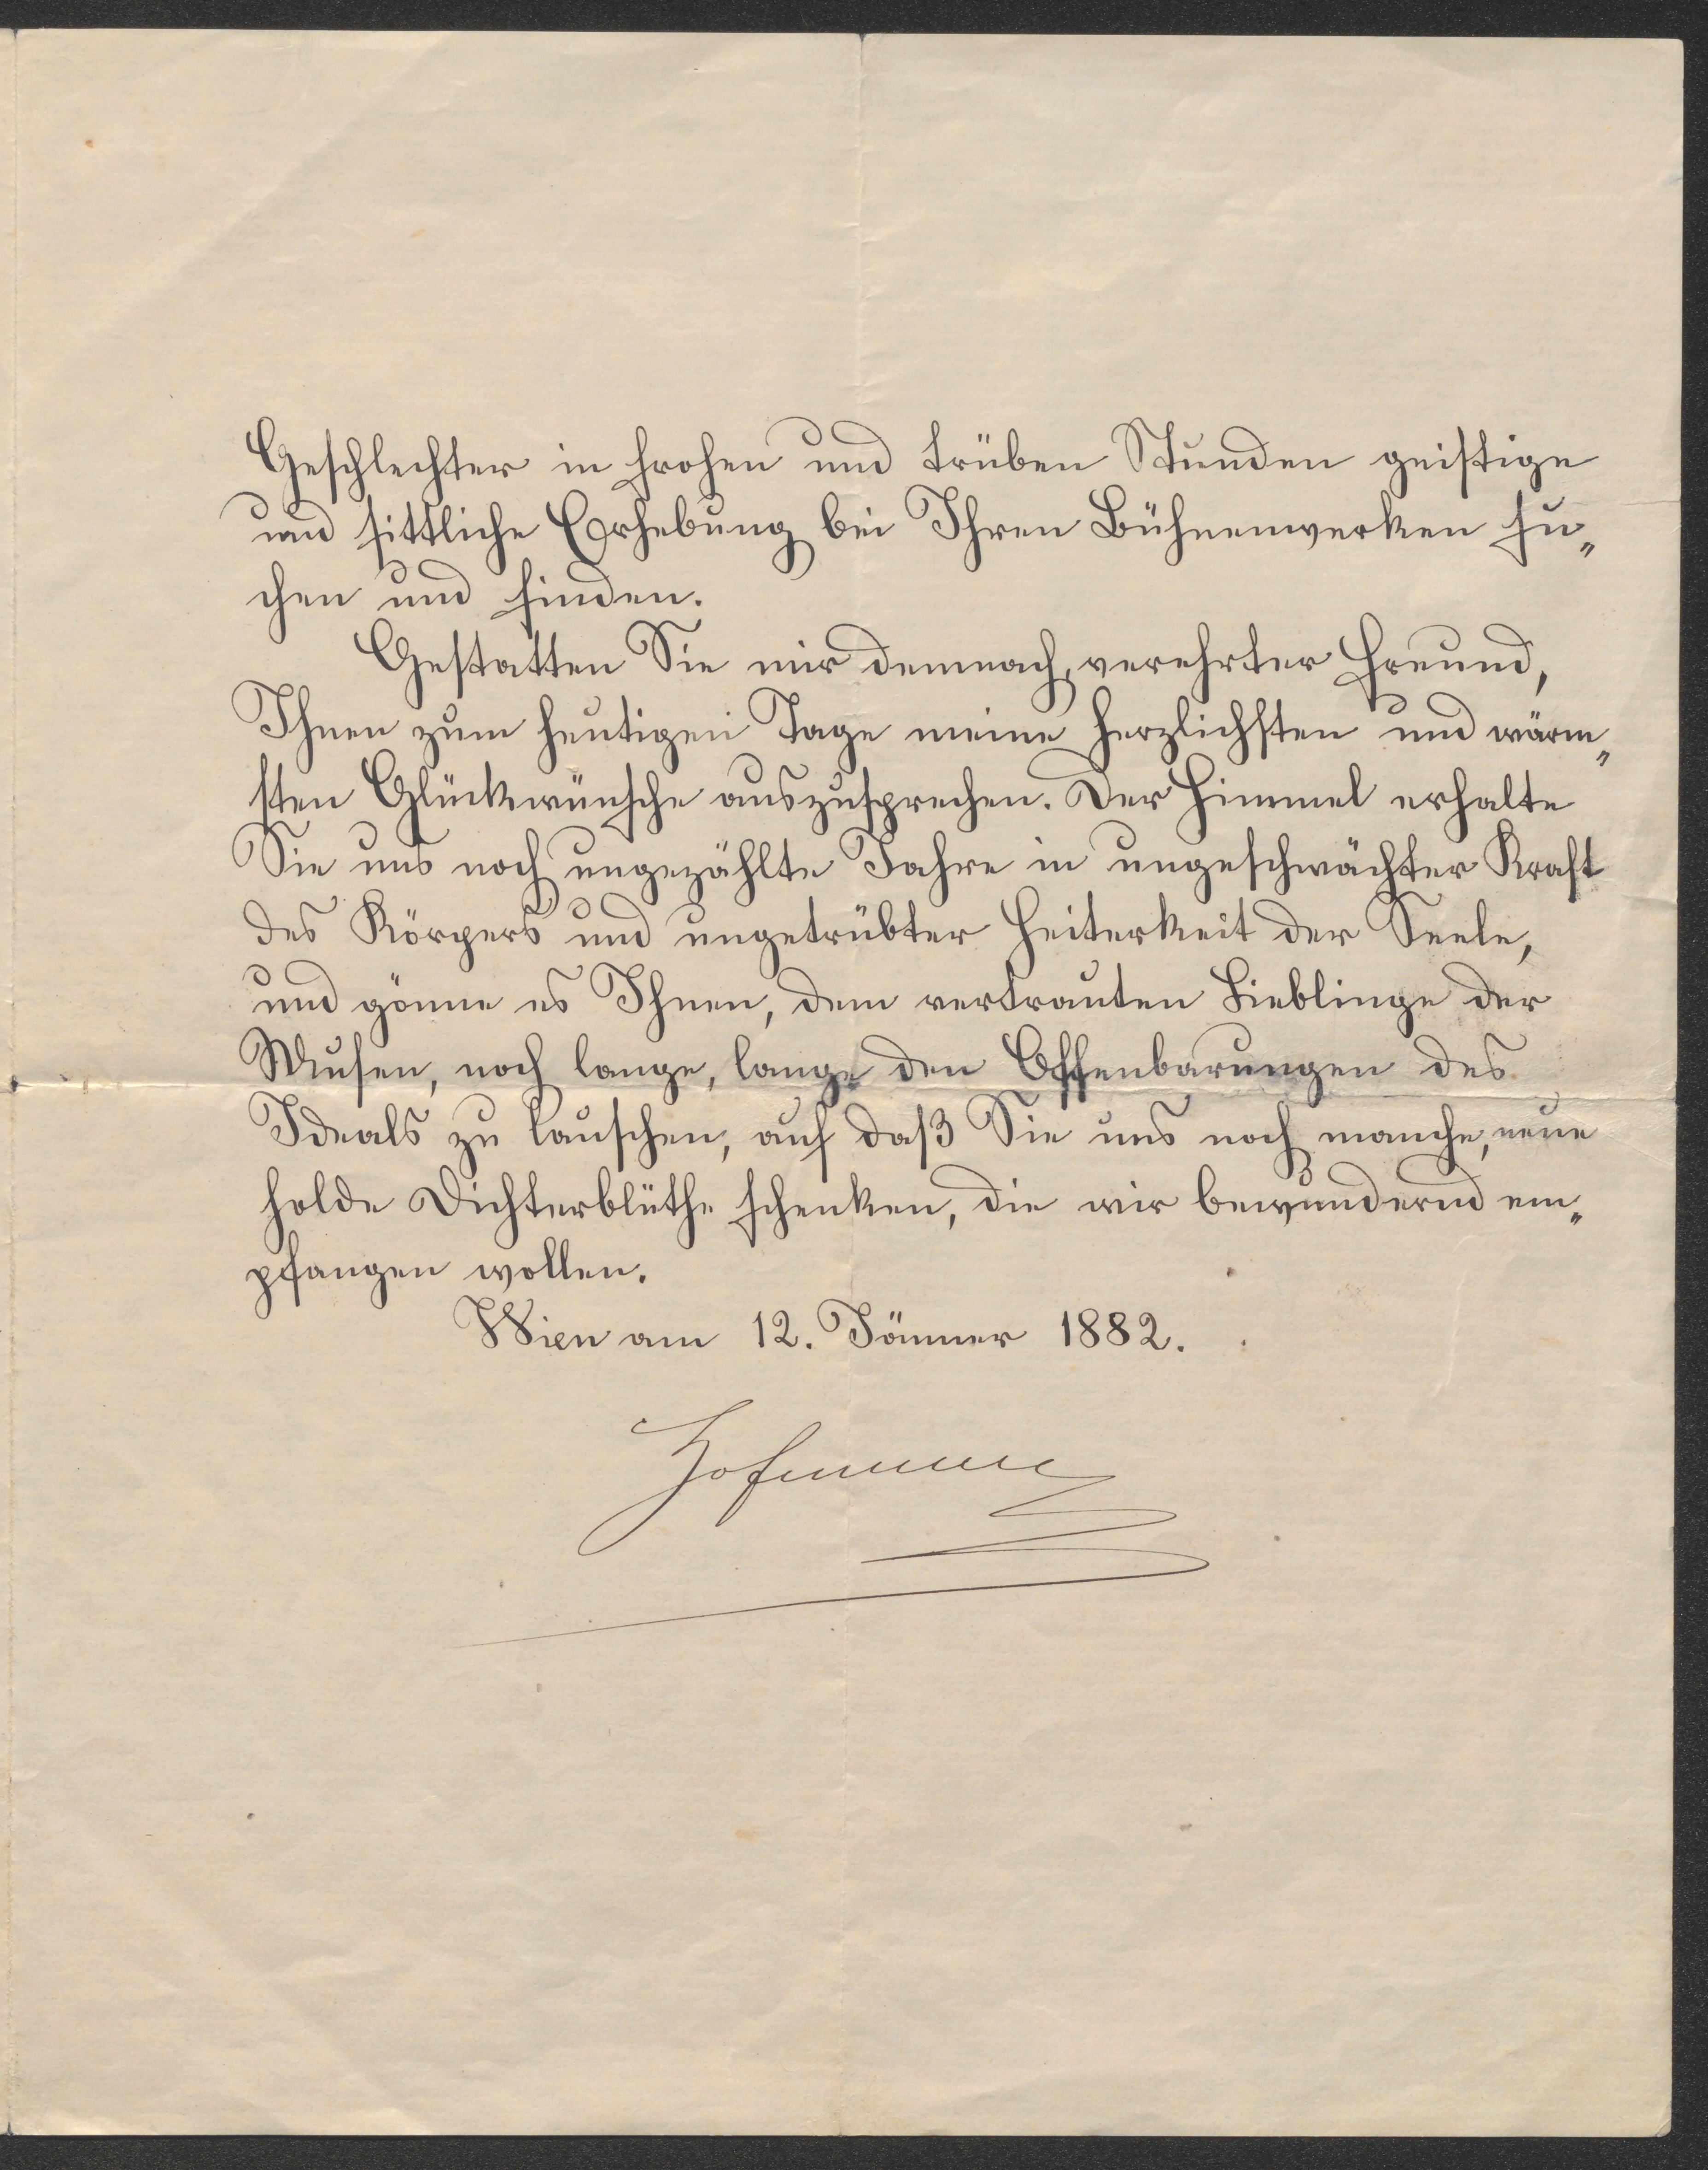 Geschlechter in frohen und trüben Stunden geistige
und sittliche Erhebung bei Ihren Bühnenwerken su„
chen und finden.
Gestatten Sie mir demnach, verehrter Freund,
Ihnen zum heutigen Tage meine herzlichsten und wärm„
sten Glückwünsche auszusprechen. Der Himmel erhalte
Sie uns noch ungezählte Jahre in ungeschwächter Kraft
des Körpers und ungetrübter Heiterkeit der Seele,
und gönne es Ihnen, dem vertrauten Lieblinge der
Musen, noch lange, lange den Offenbarungen des
Ideals zu lauschen, auf daß Sie uns noch manche, neue
holde Dichterblüthe schenken, die wir bewundernd em„
pfangen wollen.
Wien am 12. Jänner 1882.
Hofmann